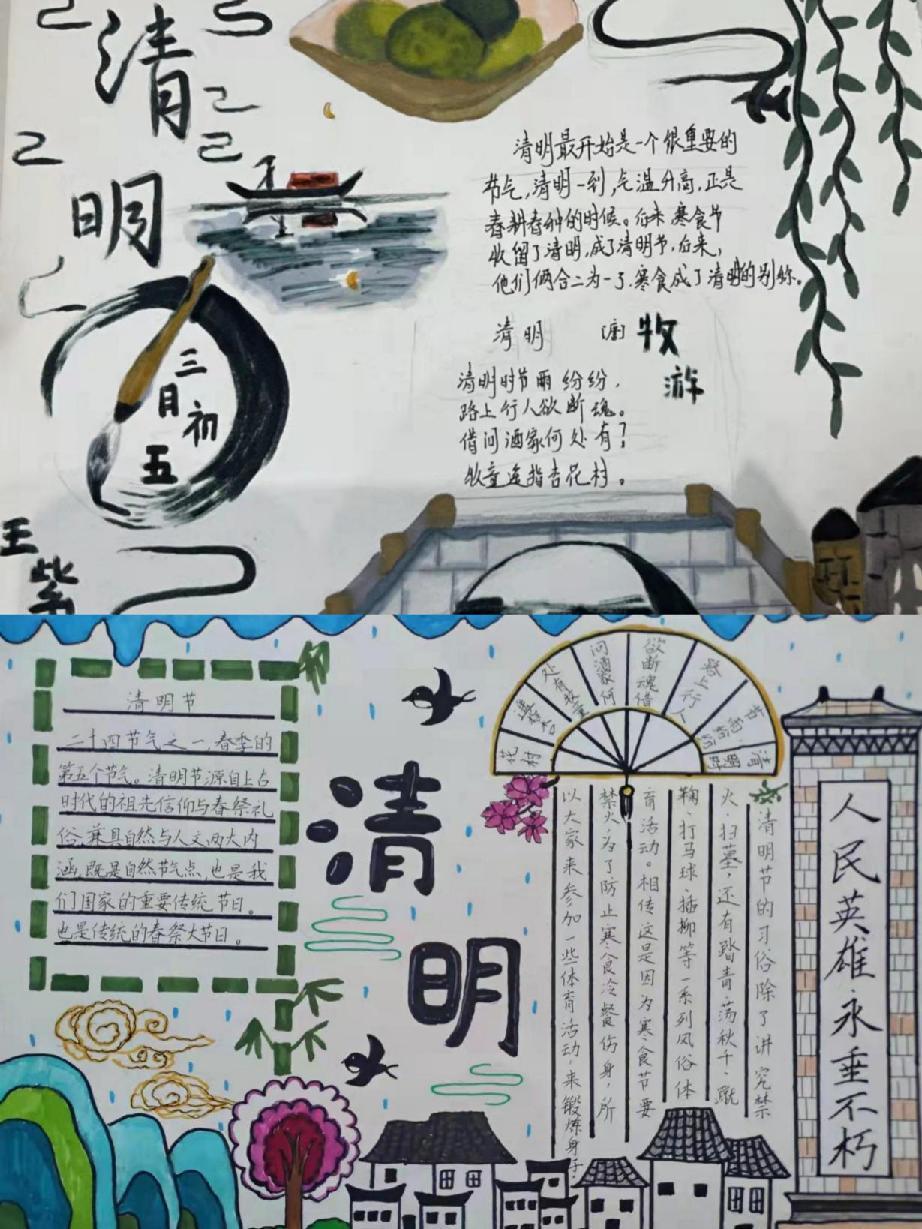 清
明
清明最开始是一个很重要的
节气,清明一到,气温分高,正是
春耕春种的时候。后来寒食节
收留了清明,成了清明节,后来,
他们俩合二为一了.寒食成了清明的别称。
清明 唐 牧
游
清明时节雨纷纷,
路上行人欲断魂。
借问酒家何处有?
牧童遥指杏花村。
三
月
初
五
王
紫
清明节
二十四节气之一,春季的
第五个节气。清明节源自上古
时代的祖先信仰与春祭礼
俗,兼具自然与人文两大内
涵,既是自然节气点,也是我
们国家的重要传统节日。
也是传统的春祭大节日。
清
明
清明时
节雨纷纷
路上行人
欲断魂借
问酒家何
处有牧童
遥指杏
花村
清明节的习俗除了讲究禁
火、扫墓,还有踏青、荡秋千、蹴
鞠、打马球、插柳等一系列风俗体
育活动。相传这是因为寒食节要
禁火,为了防止寒食冷餐伤身,所
以大家来参加一些体育活动,来锻炼身子
人民英雄永垂不朽